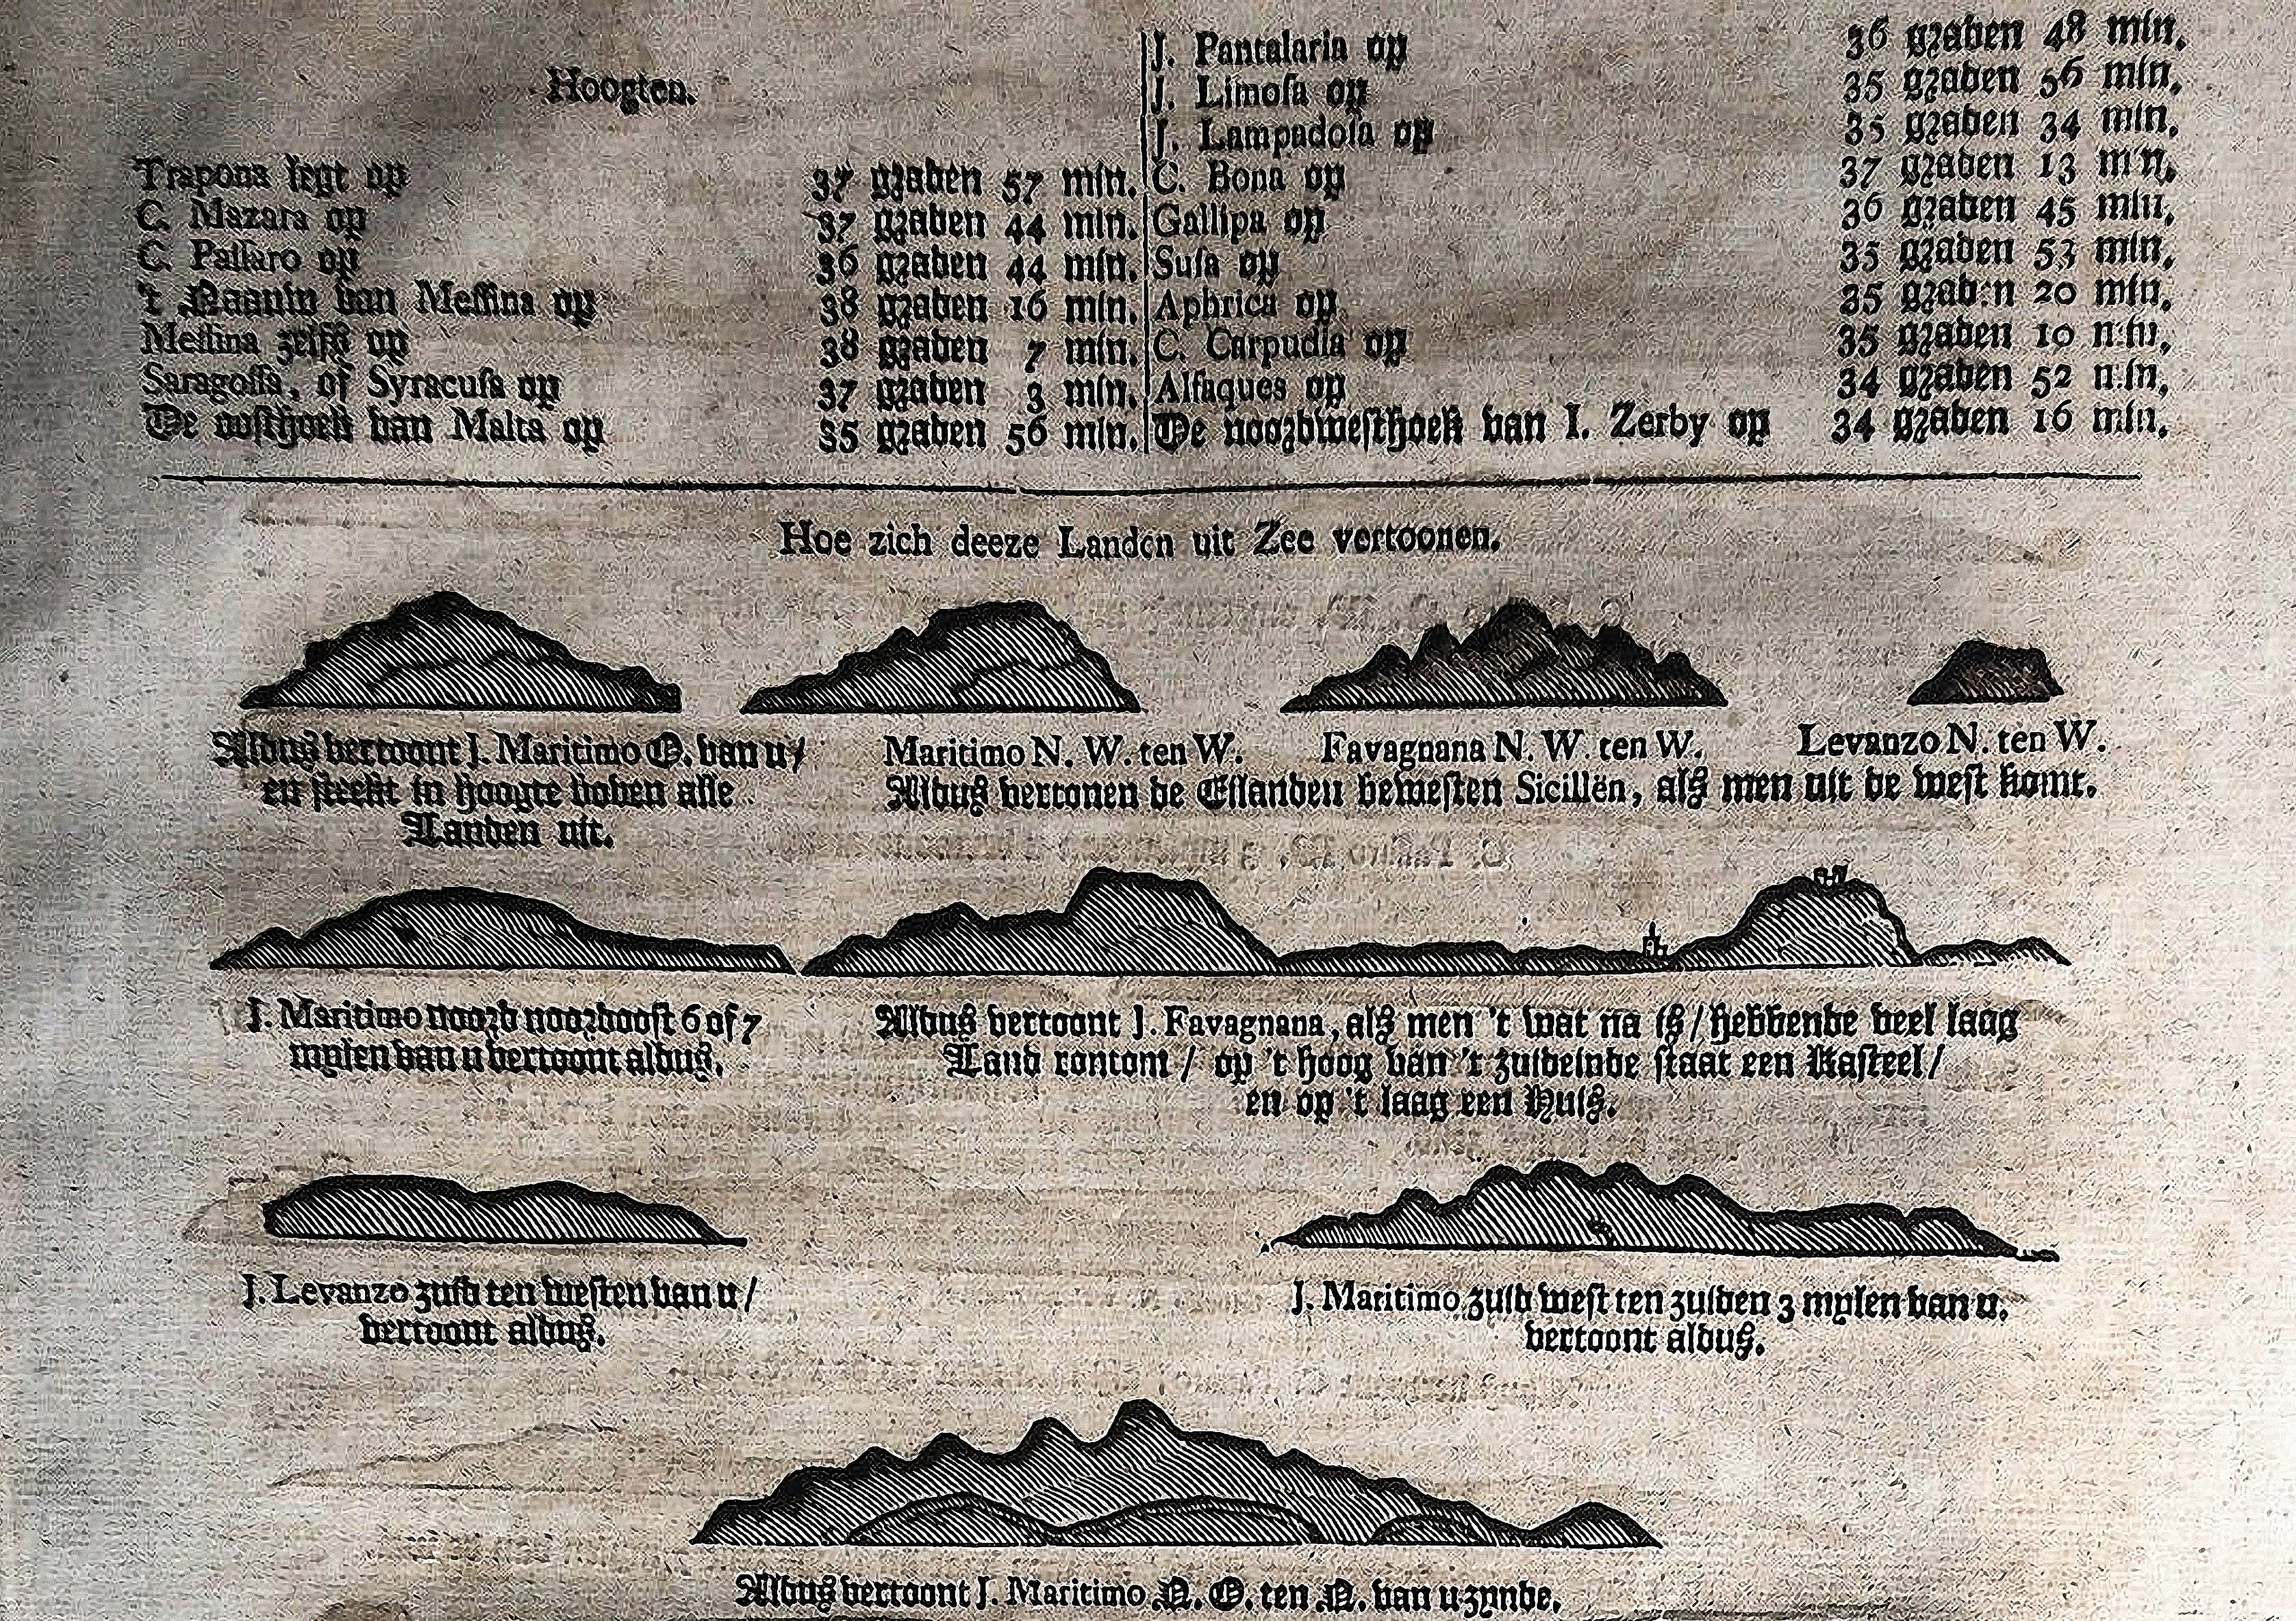 Hoogten.
Trapona legt op 37 graden 57 min.
C. Mazara op 37 graden 44 min.
C. Passaro op 36 graden 44 min.
't Naauw van Messina op 38 graden 16 min.
Messina zelfs op 38 graden 7 min.
Saragossa, of Syracusa op 37 graden 3 min.
De oosthoek van Malta op 35 graden 56 min.
J. Pantalaria op 36 graden 48 min.
J. Limosa op 35 graden 56 min.
J. Lampadosa op 35 graden 34 min.
C. Bona op 37 graden 13 min.
Gallipa op 36 graden 45 min.
Susa op 35 graden 53 min.
Aphrica op 35 graden 20 min.
C. Carpudia op 35 graden 10 min.
Alfaques op 34 graden 52 min.
De noordwesthoek van I. Zerby op 34 graden 16 min.
Hoe zich deeze Landen uit Zee vertoonen.
Aldus vertoont J. Maritimo O. van u/
en steekt in hoogte boven alle
Landen uit.
Maritimo N. W. ten W. Favagnana N. W. ten W. Levanzo N. ten W.
Aldus vertonen de Eilanden bewesten Sicilien, als men uit de west komt.
J. Maritimo noord noordoost 6 of 7
mylen van u vertoont aldus.
Aldus vertoont J. Favagnana, als men 't wat na is/ hebbende veel laag
Land rontom/ op 't hoog van 't zuideinde staat een Kasteel/
en op 't laag een Huis.
J. Levanzo zuid ten westen van u/
vertoont aldus.
J. Maritimo zuid west ten zuiden 3 mylen van u.
vertoont aldus.
Aldus vertoont J. Maritimo N. O. ten N. van u zynde.